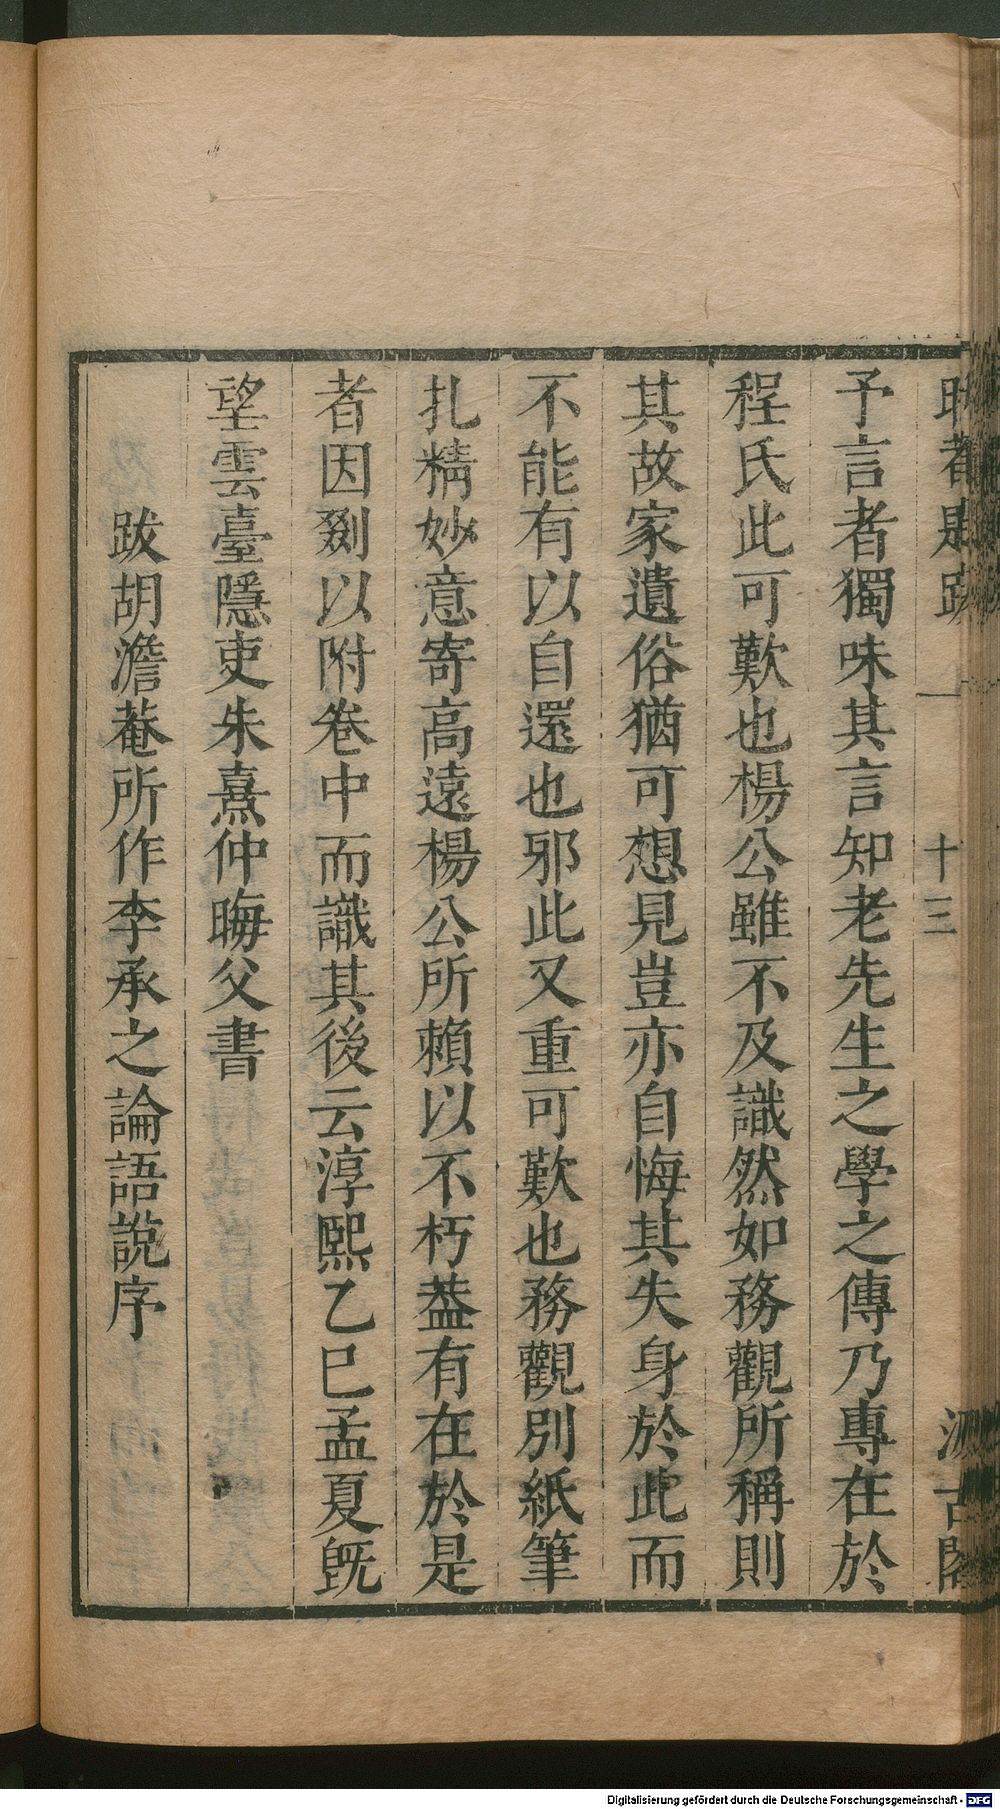 晦菴題跋 一 十三 汲古閣
予言者獨味其言知老先生之學之傳乃專在於
程氏此可歎也楊公雖不及識然如務觀所稱則
其故家遺俗猶可想見豈亦自悔其失身於此而
不能有以自還也邪此又重可歎也務觀別紙筆
扎精妙意寄高遠楊公所賴以不朽葢有在於是
者因剟以附卷中而識其後云淳熙乙巳孟夏旣
望雲臺隱吏朱熹仲晦父書
跋胡澹菴所作李承之論語說序
Digitalisierung gefördert durch die Deutsche Forschungsgemeinschaft - DFG